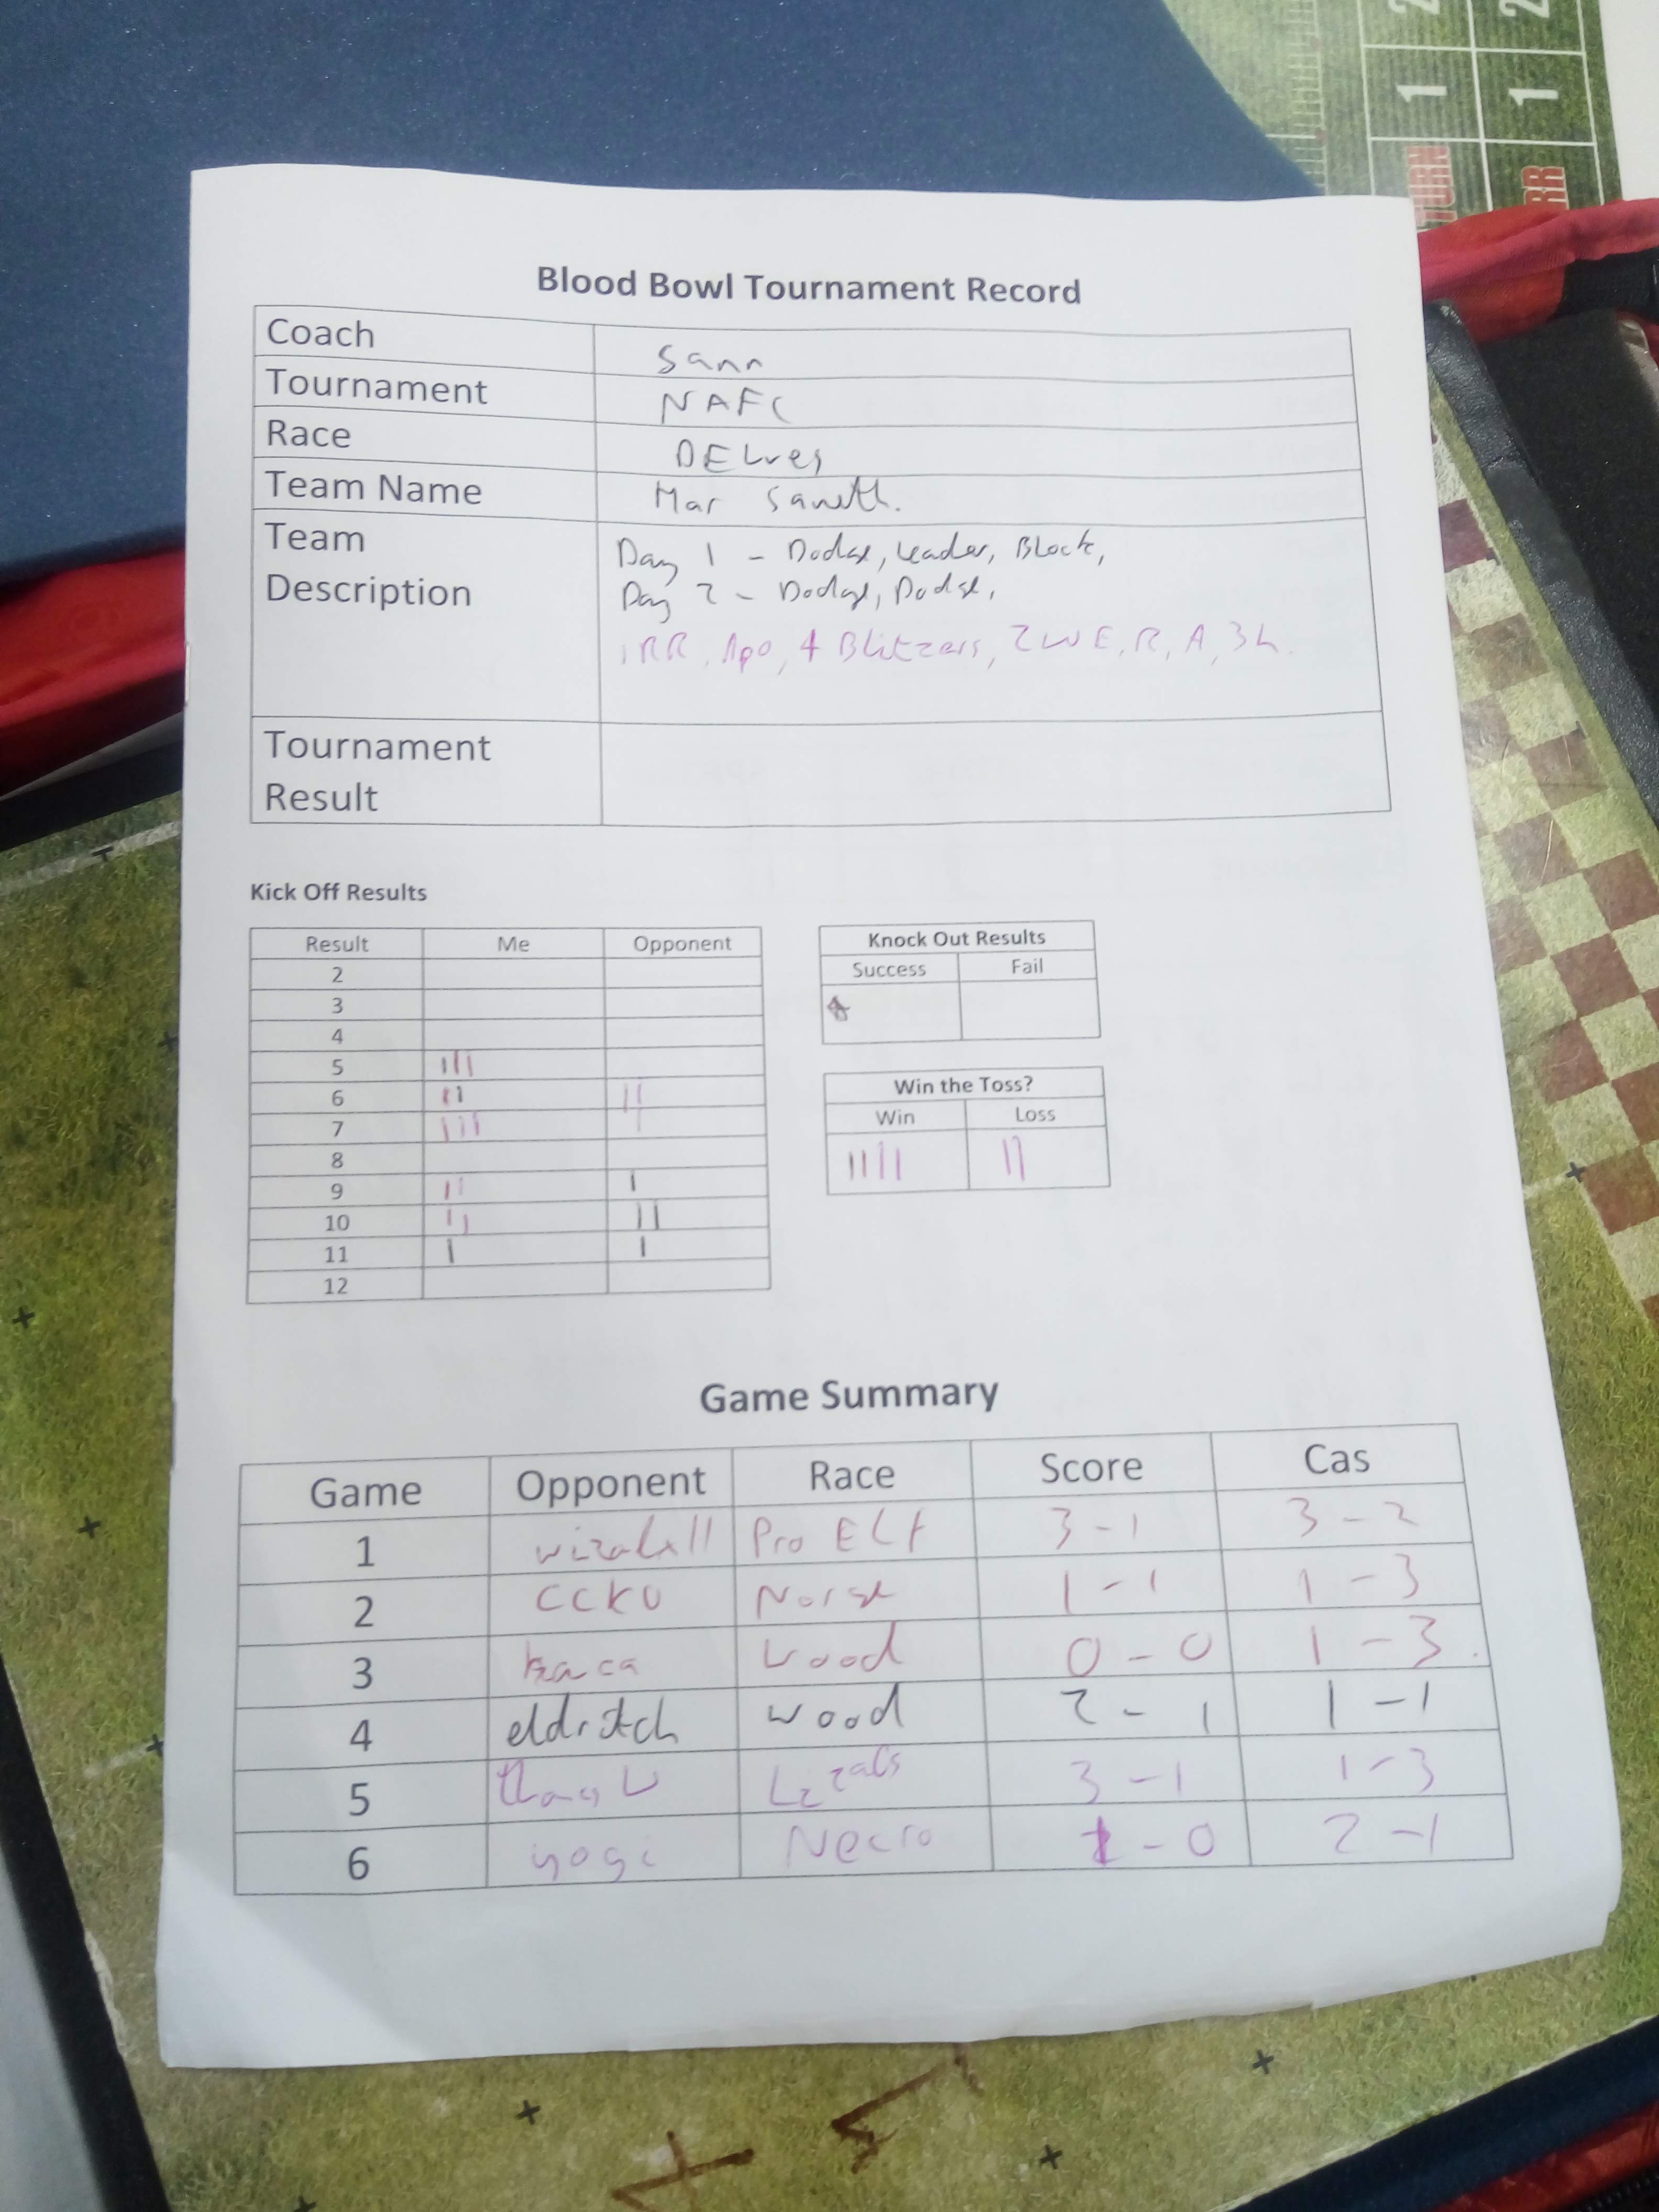 1 2
1 2
TURN
RR
Blood Bowl Tournament Record
Coach Sann
Tournament NAFC
Race DELves
Team Name Mar
Team Description Day 1 - Dodge, Leader, Block,
Day 2 - Dodge, Dodge,
1RR, Apo, 4 Blitzers, 2WE, R, A, 3L.
Tournament Result
Kick Off Results
Result Me Opponent
2
3
4
5 III
6 II II
7 III I
8
9 II I
10 II II
11 I I
12
Knock Out Results
Success Fail
Win the Toss?
Win Loss
IIII II
Game Summary
Game Opponent Race Score Cas
1 Pro Elf 3-1 3-2
2 CCKU Norse 1-1 1-3
3 Wood 0-0 1-3.
4 eldritch Wood 2-1 1-1
5 3-1 1-3
6 yogi Necro -0 2-1